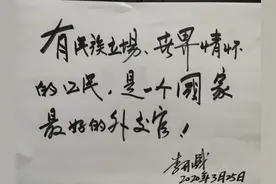 有民族立場、世界情怀
的公民，是一个國家
最好的外交官！
2020年3月25日